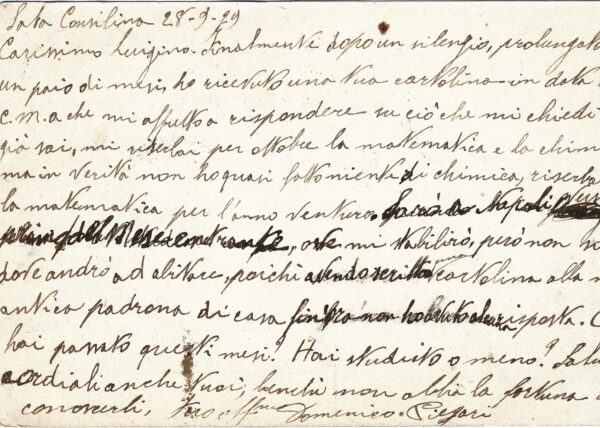 Sala Consilina 28-9-29
Carissimo Luigino. Finalmente dopo un silenzio, prolungato
un paio di mesi, ho ricevuto una tua cartolina in data
c.m. a che mi affretto a rispondere su ciò che mi chiedi
già sai, mi riserbai per ottobre la matematica e la chim
ma in verità non ho quasi fatto niente di chimica, riserba
la matematica per l'anno venturo. Sarò a Napoli verso
primo del mese entrante, ove mi stabilirò, però non so
dove andrò ad abitare, perchè avendo scritto cartolina alla m
antica padrona di casa finora non ho avuto alcuna risposta. C
hai passato questi mesi? Hai studiato o meno? Salu
cordiali anche tuoi, benchè non abbia la fortuna d
conoscerli, tuo aff.mo Domenico